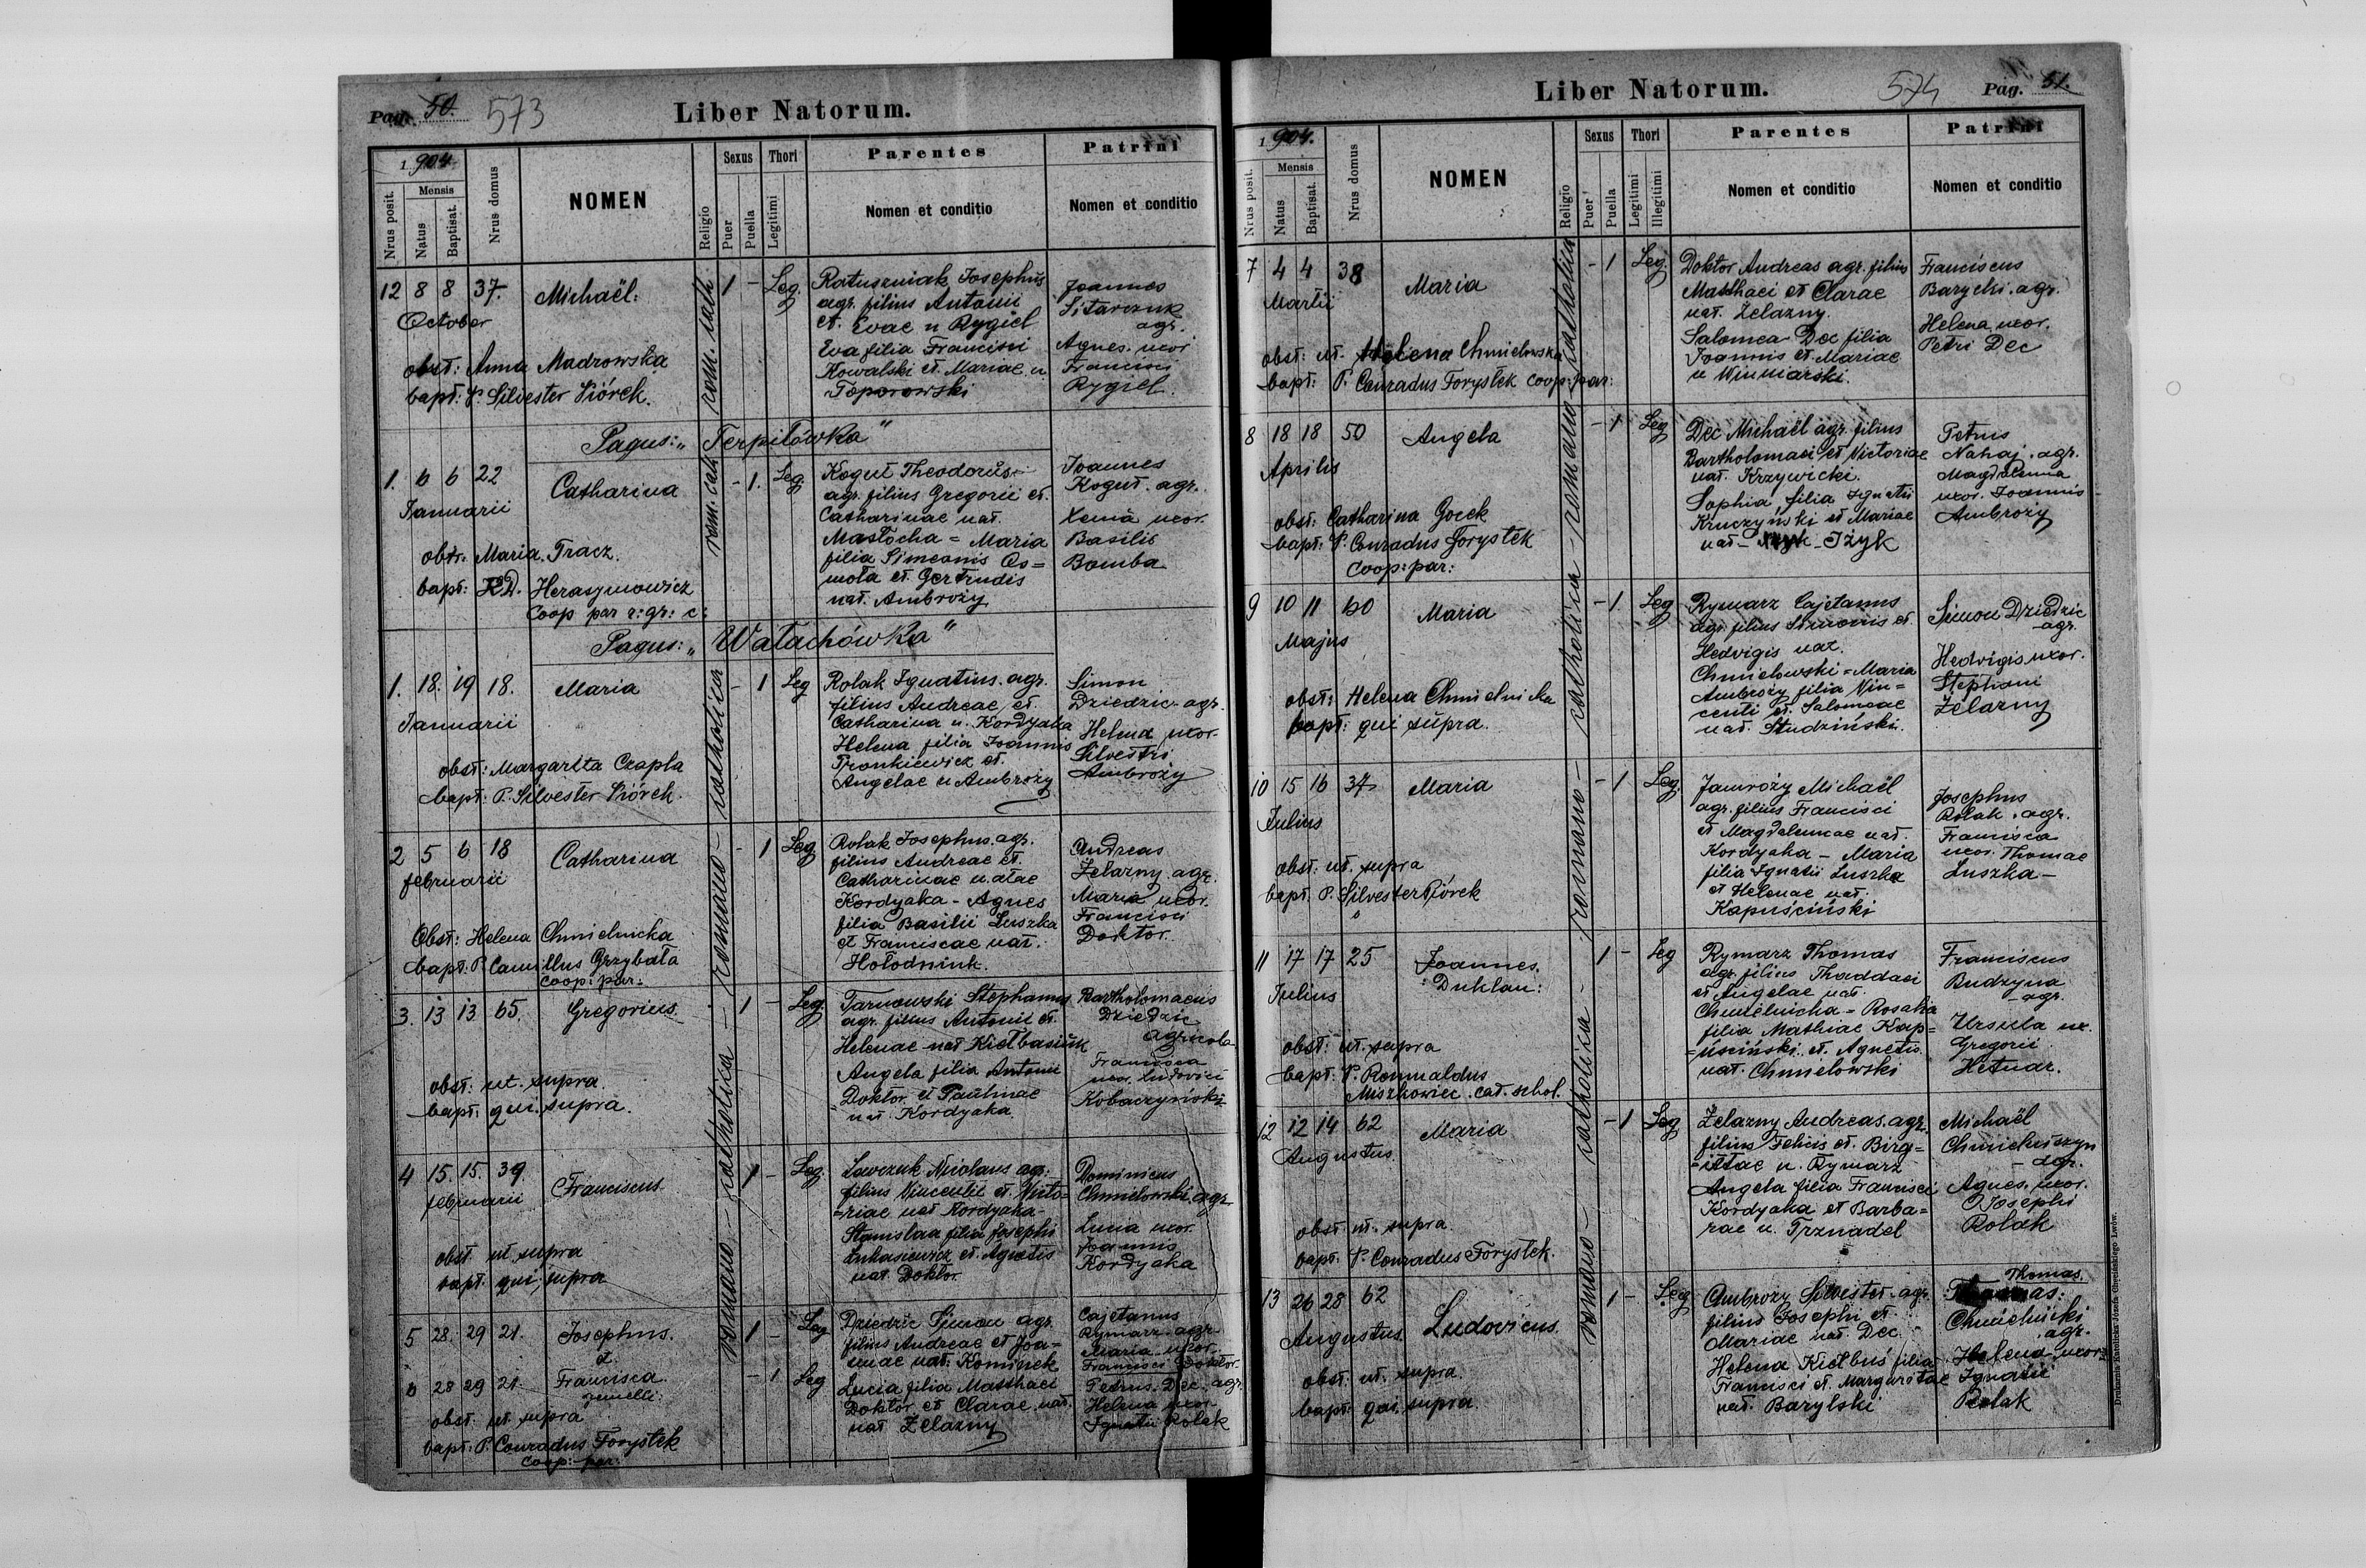 Pag. 50. 573
Liber Natorum.
1904
Nrus posit.
Mensis
Natus
Baptisat.
Nrus domus
NOMEN
Religio
Sexus
Puer
Puella
Thori
Legitimi
Parentes
Nomen et conditio
Patrini
Nomen et conditio
12 8 8 37. Michaël: rom. cath. 1 - Leg.
October
obst: Anna Madrowska
bapt: P. Silvester Piórek.
Ratuszniak Josephus
agr. filius Antonii
et. Evae n Rygiel
Eva filia Francisci
Kowalski et. Mariae n
Toporowski
Joannes
Sitarczuk
agr.
Agnes. uxor
Francisci
Rygiel.
Pagus: „Terpiłówka"
1. 6 6 22 Catharina rom. cath - 1. Leg.
Januarii
obst. Maria Tracz.
bapt: R.D. Herasymowicz
Coop par r: gr: c:
Kogut Theodorus
agr. filius Gregorii et.
Catharinae nat.
Mastocha = Maria
filia Simeonis Os=
mota et. Gertrudis
nat. Ambroży
Joannes
Kogut. agr.
Xenia uxor.
Basilii
Bomba
Pagus: „Wałachówka"
1. 18. 19 18. Maria - 1 Leg
Januarii
obst: Margarita Czapla
bapt: P. Silvester Piórek.
Rolak Ignatius. agr.
filius Andreae et.
Catharina n. Kordyaka
Helena filia Joannis
Frankiewicz et.
Angelae n Ambroży
Simon
Dziedzic agr.
Helena uxor
Silvestri
Ambroży
romano - catholica
2 5 6 18 Catharina - 1 Leg
februarii
Obst: Helena Chmielnicka
bapt: P. Camillus Grzybała
coop: par:
Rolak Josephus. agr.
filius Andreae et.
Catharinae natae
Kordyaka - Agnes
filia Basilii Luszka
et Franciscae nat.
Hołodniuk.
Andreas
Żelazny agr.
Maria uxor.
Francisci
Doktor.
3. 13 13 65. Gregorius. 1 - Leg.
obst: ut. supra.
bapt. qui. supra.
Tarnowski Stephanus
agr. filius Antonii et.
Helenae nat Kiełbasiuk
Angela filia Antonii
Doktor et Paulinae
nat. Kordyaka
Bartholomaeus
Dziedzic
agricola
Francisca
uxor Ludovici
Kobaczyński
4 15. 15. 39. Franciscus 1 - Leg.
februarii
obst ut supra
bapt. qui supra
Ławczuk Nicolaus agr.
filius Vincentii et. Victo=
=riae nat Kordyaka
Stanislaa filia Josephi
Łukasiewicz et. Agnetis
nat Doktor
Dominicus
Chmielowski. agr
Lucia uxor.
Joannis
Kordyaka
romano - catholica
5 28. 29 21. Josephus. 1 - Leg
et
6 28 29 21. Francisca - 1 Leg
gemelli.
obst. ut supra
bapt: P. Conradus Forystek
coop: par:
Dziedzic Simon agr.
filius Andreae et Joa=
nnae nat: Kominek
Lucia filia Matthaei
Doktor et Clarae nat.
nat Żelazny
Cajetanus
Rymarz. agr.
Maria uxor
Francisci Doktor
Petrus. Dec. agr.
Helena uxor
Ignatii Rolak
Liber Natorum.
574 Pag. 51.
1904.
Nrus posit.
Mensis
Natus
Baptisat.
Nrus domus
NOMEN
Religio
Sexus
Puer
Puella
Thori
Legitimi
Illegitimi
Parentes
Nomen et conditio
Patrini
Nomen et conditio
7 4 4 38 Maria - 1 Leg.
Martii
obst: ut. Helena Chmielowska
bapt: P. Conradus Forystek coop: par:
Doktor Andreas agr. filius
Matthaei et Clarae
nat. Żelazny.
Salomea Dec filia
Joannis et. Mariae
n Winniarski.
Franciscus
Barycki. agr.
Helena uxor.
Petri Dec
romano - catholica
8 18 18 50 Angela - 1 Leg
Aprilis
obst: Catharina Gocek
bapt: P. Conradus Forystek
Coop: par:
Dec Michaël agr. filius
Bartholomaei et Victoriae
nat. Krzywicki.
Sophia filia Ignatii
Kruczyński et Mariae
nat - Iżyk
Petrus
Nahaj. agr.
Magdalena
uxor. Joannis
Ambroży
9 10 11 60 Maria - 1 Leg
Majus
obst: Helena Chmielnicka
bapt: qui supra.
Rymarz Cajetanus
agr. filius Simonis et.
Hedvigis nat.
Chmielowski = Maria
Ambroży filia Vin=
centi et. Salomeae
nat. Studziński.
Simon Dziedzic
agr.
Hedvigis uxor.
Stephani
Żelazny
10 15 16 37 Maria - 1 Leg.
Julius
obst: ut. supra
bapt. P. Silvester Piórek
Jamroży Michaël
agr. filius Francisci
et Magdalenae nat.
Kordyaka - Maria
filia Ignatii Luszka
et Helenae nat.
Kapuściński
Josephus
Rolak. agr.
Francisca
uxor. Thomae
Luszka -
romano - catholica
11 17 17 25 Joannes. 1 - Leg
Duklan:
Julius
obst: ut. supra
bapt: P. Romualdus
Miszkowiec. cat. schol.
Rymarz Thomas
agr. filius Thaddaei
et Angelae nat.
Chmielnicka - Rosalia
filia Mathiae Kap=
=uściński. et. Agnetis
nat. Chmielowski
Franciscus
Budzyna
- agr.
Ursula ux.
Gregorii
Hetnar.
12 12 14 62 Maria - 1 Leg
Augustus.
obst ut. supra
bapt. P. Conradus Forystek.
Żelazny Andreas. agr.
filius Felicis et. Birg=
=ittae n. Rymarz
Angela filia Francisci
Kordyaka et Barba=
rae n. Trznadel
Michaël
Chmielniszyn
- agr.
Agnes. uxor.
Josephi
Rolak
romano - catholica
13 26 28 62 Ludovicus. 1 - Leg
Augustus.
obst: ut. supra.
bapt: qui. supra.
Ambroży Silvester. agr.
filius Josephi et
Mariae nat. Dec.
Helena Kiełbus filia
Francisci et. Margaritae
nat. Barylski
Thomas.
Chmielnicki
agr.
Helena uxor
Ignatii
Rolak
Drukarnia Katolicka Józefa Chęcińskiego Lwów.